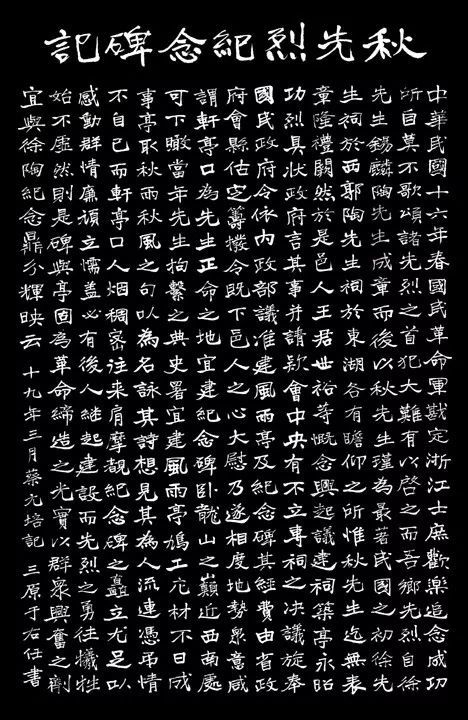 秋先烈紀念碑記
中華民國十六年春國民革命軍戡定浙江士庶歡樂追念成功
所自莫不歌頌諸先烈之首犯大難有以啓之而吾鄉先烈自徐
先生錫麟陶先生成章而後以秋先生瑾為最著民國之初徐先
生祠於西郭陶先生祠於東湖各有瞻仰之所惟秋先生迄無表
章陰禮闕然於是邑人王君世裕等慨念興起議建祠築亭永昭
功烈具狀政府言其事并請欵會中央有不立專祠之决議旋奉
國民政府令依内政部議准建風雨亭及紀念碑其經費由省政
府會縣估定籌撥令既下邑人之心大慰乃遂相度地勢衆意咸
謂軒亭口為先生正命之地宜建紀念碑卧龍山之巔近西南處
可下瞰當年先生拘繫之典史署宜建風雨亭鳩工庀材不日成
事亭取秋雨秋風之句以為名詠其詩想見其為人流連憑弔情
不自已而軒亭口人烟稠密往來肩摩覩紀念碑之矗立尤足以
感動群情廉頑立懦蓋必有後人继起建設而先烈之勇往犧牲
始不虛然則是碑與亭固為革命締造之光實以群衆興奮之劑
宜與徐陶紀念鼎分輝映云 十九年三月蔡元培記 三原于右任書